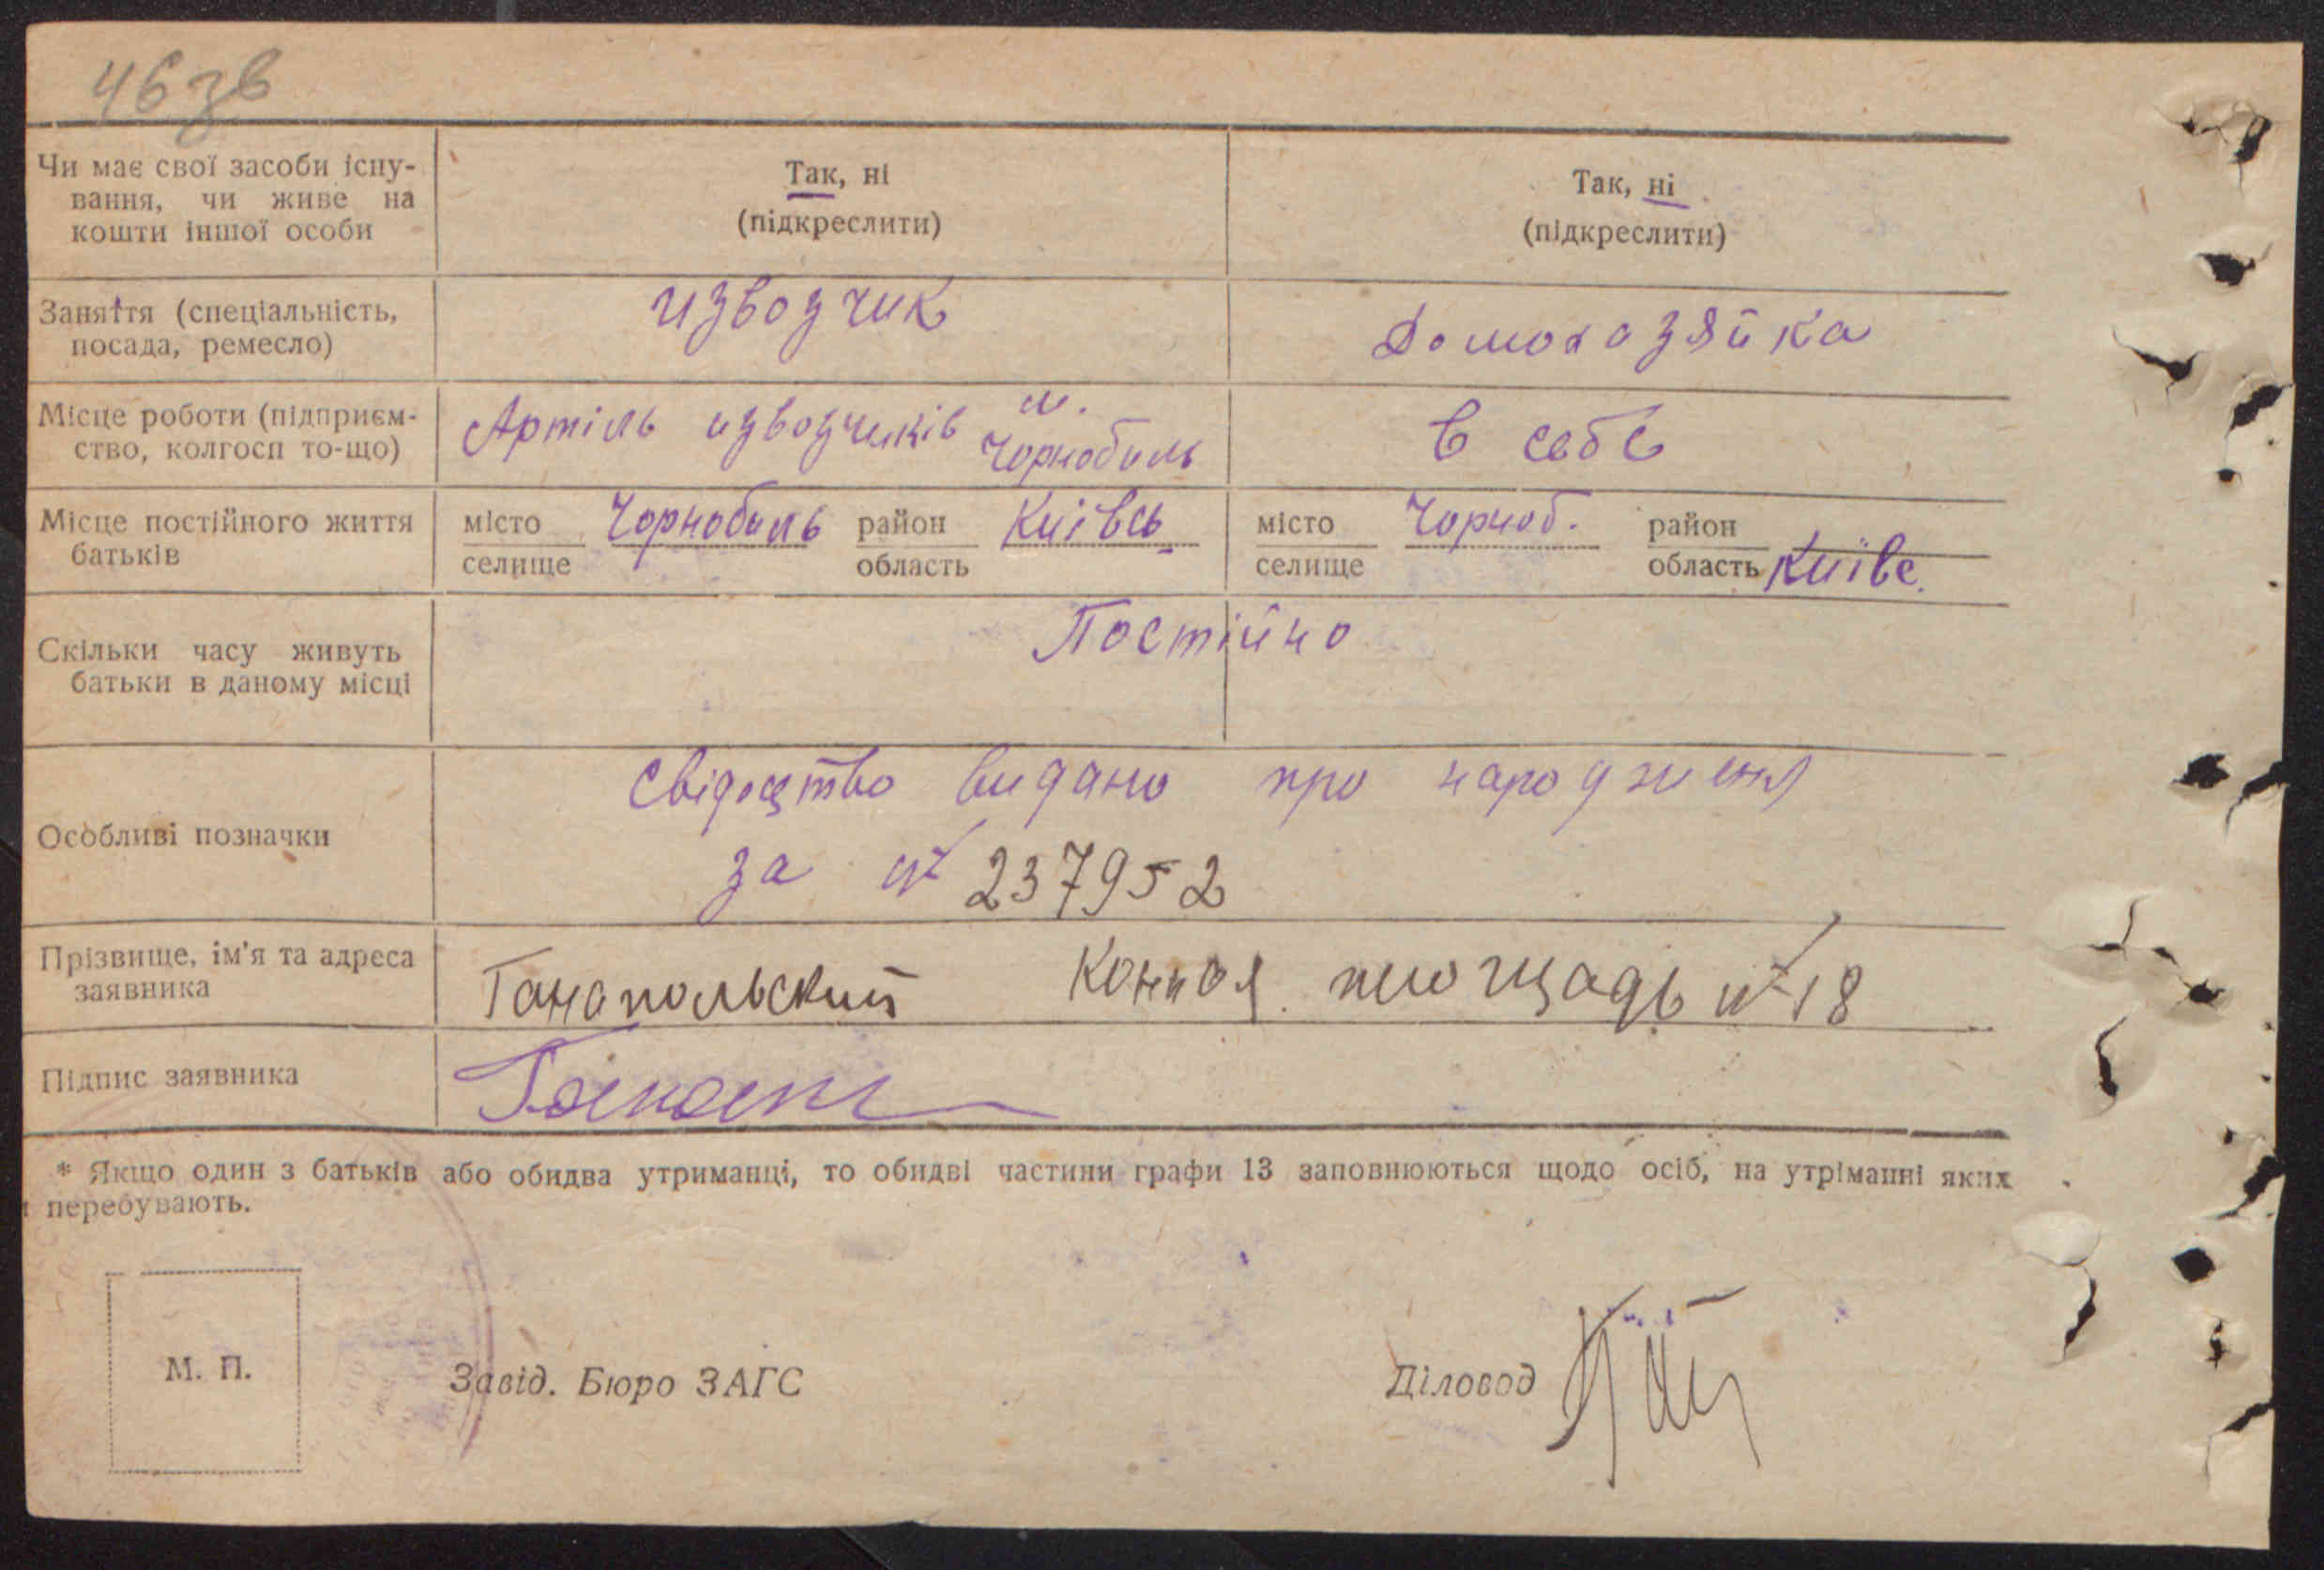 46 зв
Чи має свої засоби існу-
вання, чи живе на
кошти іншої особи
Так, ні
(підкреслити)
Так, ні
(підкреслити)
Заняття (спеціальність,
посада, ремесло)
извозчик
Домохазяйка
Місце роботи (підприєм-
ство, колгосп то-що)
Артіль извозчиків м.
Чорнобиль
в себе
Місце постійного життя
батьків
місто Чорнобиль район Київсь
селище область
місто Чорноб. район
селище область Київс.
Скільки часу живуть
батьки в даному місці
Постійно
Особливі позначки
Свідоцтво видано про народженя
за № 237952
Прізвище, ім'я та адреса
заявника
Ганапольский Конная площадь № 18
Підпис заявника
* Якщо один з батьків або обидва утриманці, то обидві частини графи 13 заповнюються щодо осіб, на утріманні яких
перебувають.
М. П.
Завід. Бюро ЗАГС
Діловод